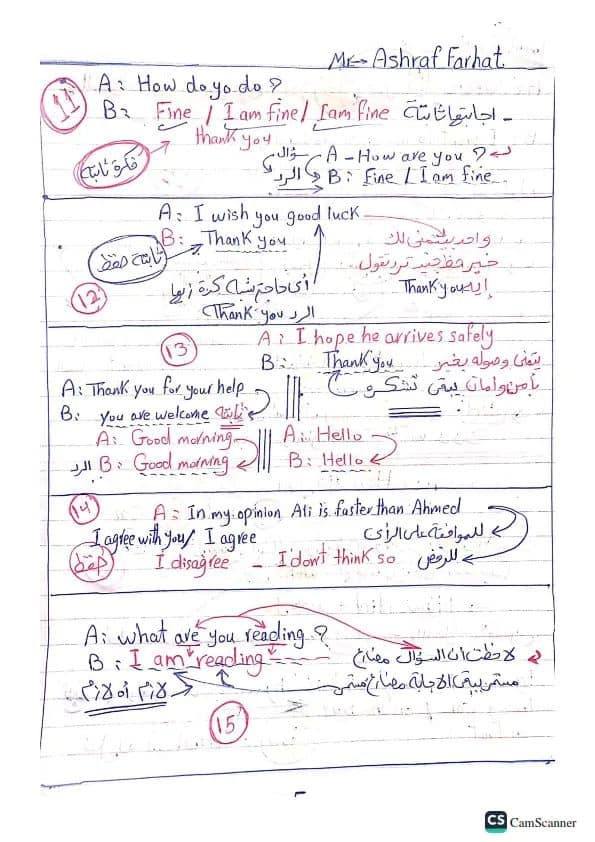 Mr. Ashraf Farhat
11
A: How do yo do ?
B: Fine / I am fine / I am fine اجابتها ثابتة -
thank you
فكرة ثابتة
سؤال A - How are you ?
الرد B: Fine / I am fine
A: I wish you good luck
B: Thank you
ثابتة حفظ
واحد بيتمنى لك
خير حظ جيد ترد تقول
إيه Thank you
الرد Thank you
12
13
A: I hope he arrives safely
B: Thank you يتمنى وصوله بخير
بأمن وامان يبقى تشكره
A: Thank you for your help
B: you are welcome ثابتة
A: Good morning
الرد B: Good morning
A: Hello
B: Hello
14
A: In my opinion Ali is faster than Ahmed
I agree with you / I agree للموافقة على الرأى
حفظ I disagree - I don't think so للرفض
A: what are you reading ?
B: I am reading لاحظت ان السؤال مضارع
مستمر يبقى الاجابة مضارع مستمر
15
CS CamScanner